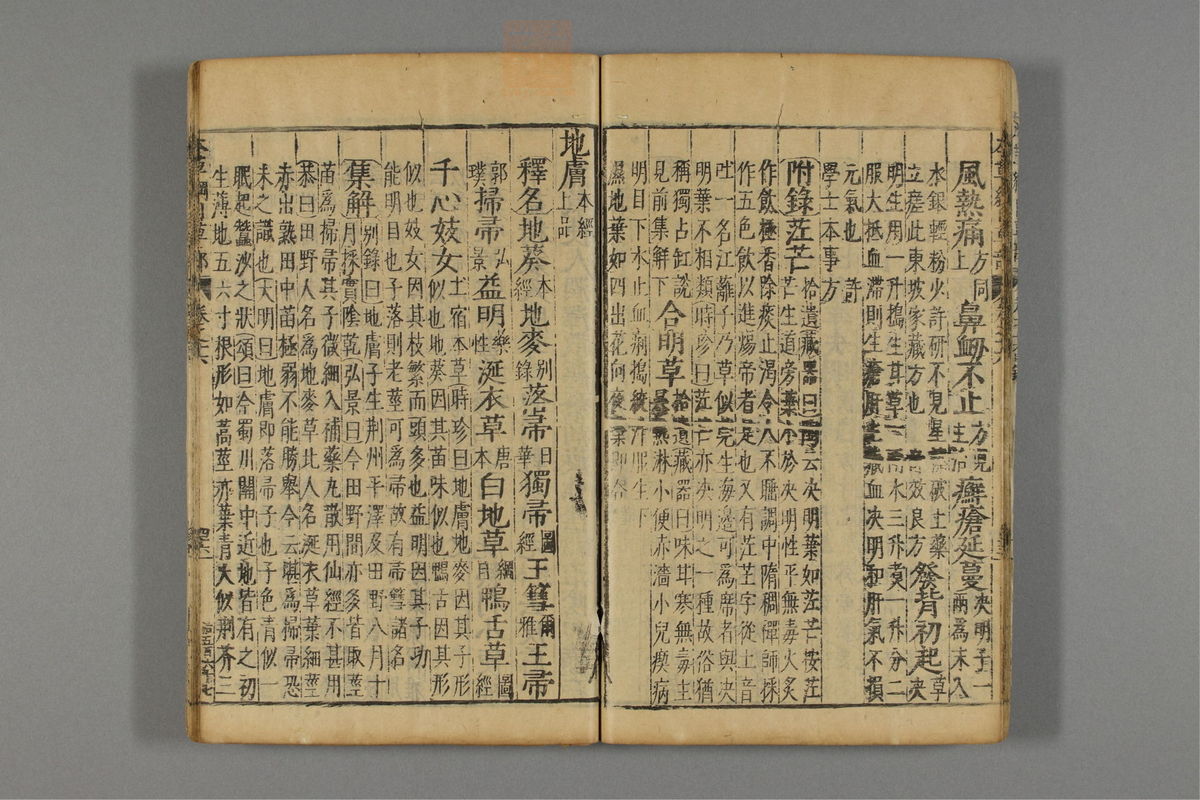 風熱痛方同上鼻衄不止方見生治癬瘡延蔓決明子一兩爲末入
水銀輕粉少許研不見星擦破上藥
立瘥此東坡家藏方也奇效良方發背初起草決
明生用一升搗生甘草一兩水三升煑一升分二
服大抵血滯則生瘡肝主藏血決明和肝氣不損
元氣也許
學士本事方
附錄茳芒拾遺藏器曰陶云決明葉如茳芒按茳
芒生道旁葉小於決明性平無毒火炙
作飲極香除痰止渴令人不睡調中隋稠禪師採
作五色飲以進煬帝者是也又有茳芏字從土音
吐一名江蘺子乃草似莞生海邊可爲席者與決
明葉不相類時珍曰茳芒亦決明之一種故俗猶
稱獨占缸說
見前集解下合明草拾遺藏器曰味甘寒無毒主
暴熱淋小便赤濇小兒瘈病
明目下水止血痢搗絞汁服生下
濕地葉如四出花向夜葉即合
地膚本經上品
釋名地葵本經地麥別錄落帚日華獨帚圖經王蔧爾雅王帚
郭璞掃帚弘景益明藥性涎衣草唐本白地草綱目鴨舌草圖經
千心妓女土宿本草時珍曰地膚地麥因其子形
似也地葵因其苗味似也鴨舌因其形
似也妓女因其枝繁而頭多也益明因其子功
能明目也子落則老莖可爲帚故有帚蔧諸名
集解別錄曰地膚子生荆州平澤及田野八月十
月採實陰乾弘景曰今田野間亦多皆取莖
苗爲掃帚其子微細入補藥丸散用仙經不甚用
恭曰田野人名爲地麥草北人名涎衣草葉細莖
赤出熟田中苗極弱不能勝舉今云堪爲掃帚恐
未之識也大明曰地膚即落帚子也子色青似一
眠起蠶沙之狀頌曰今蜀川關中近地皆有之初
生薄地五六寸根形如蒿莖赤葉青大似荆芥三